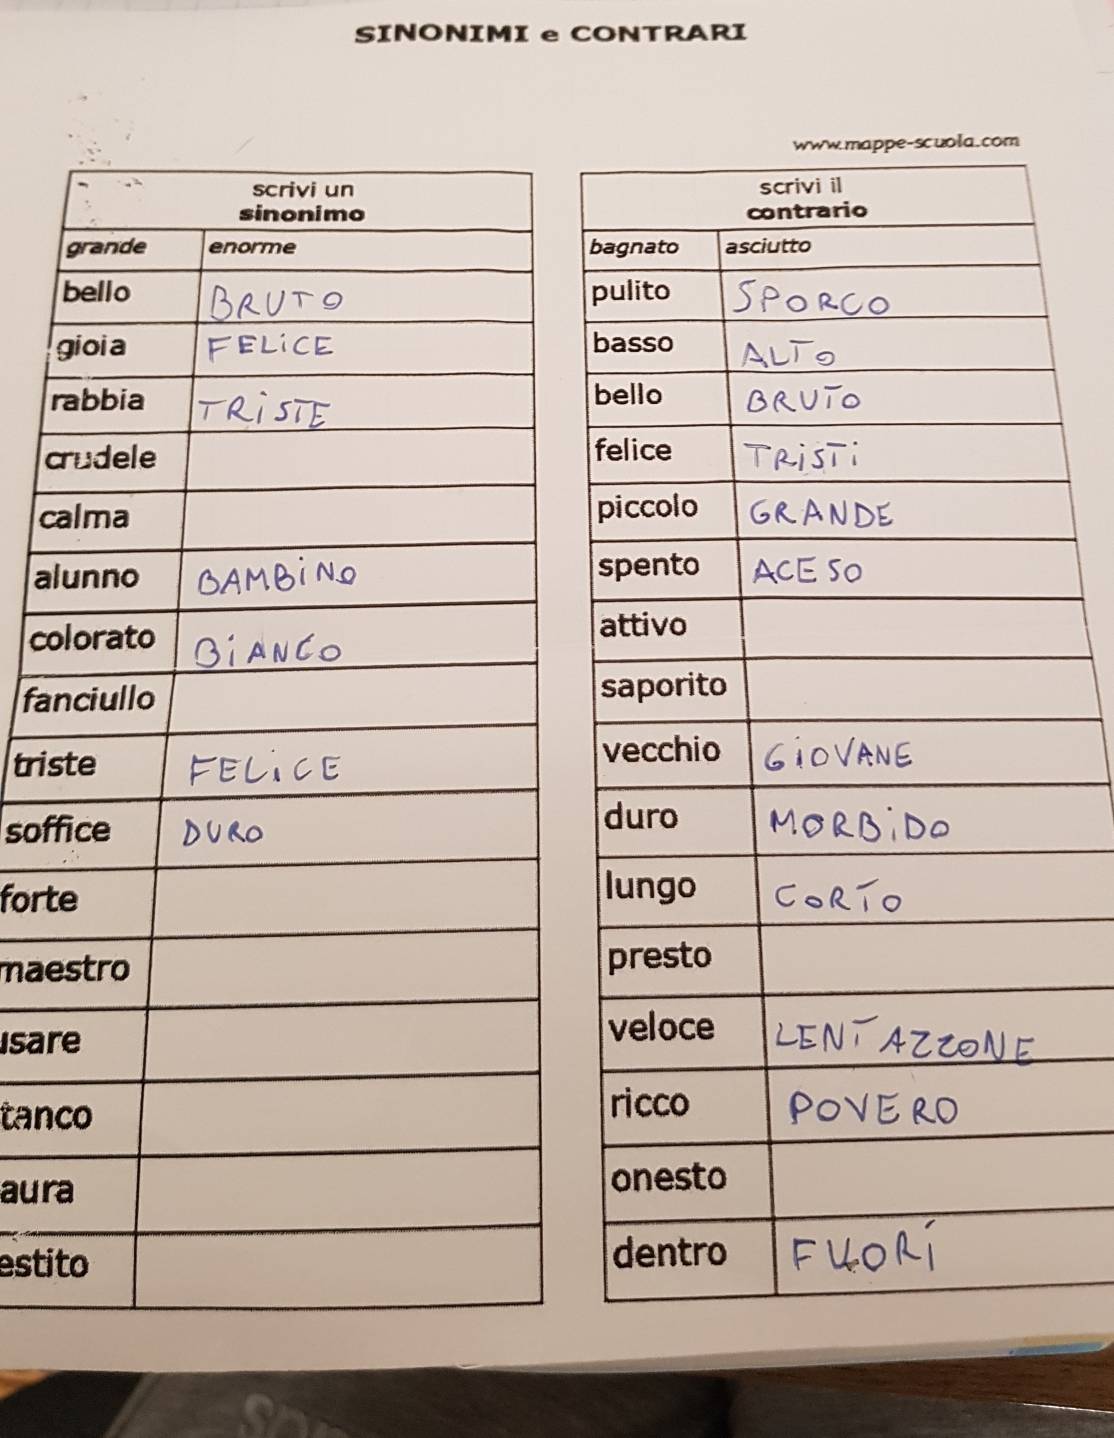 SINONIMI e CONTRARI
www.mappe-scuola.com
scrivi un
sinonimo
grande enorme
bello BRUTO
gioia FELiCE
rabbia TRiSTE
crudele
calma
alunno BAMBiNO
colorato BiANCO
fanciullo
triste FELiCE
soffice DURO
forte
maestro
usare
tanco
aura
estito
scrivi il
contrario
bagnato asciutto
pulito SPORCO
basso ALTO
bello BRUTO
felice TRiSTi
piccolo GRANDE
spento ACESO
attivo
saporito
vecchio GiOVANE
duro MORBiDO
lungo CORTO
presto
veloce LENTAZZONE
ricco POVERO
onesto
dentro FUORi